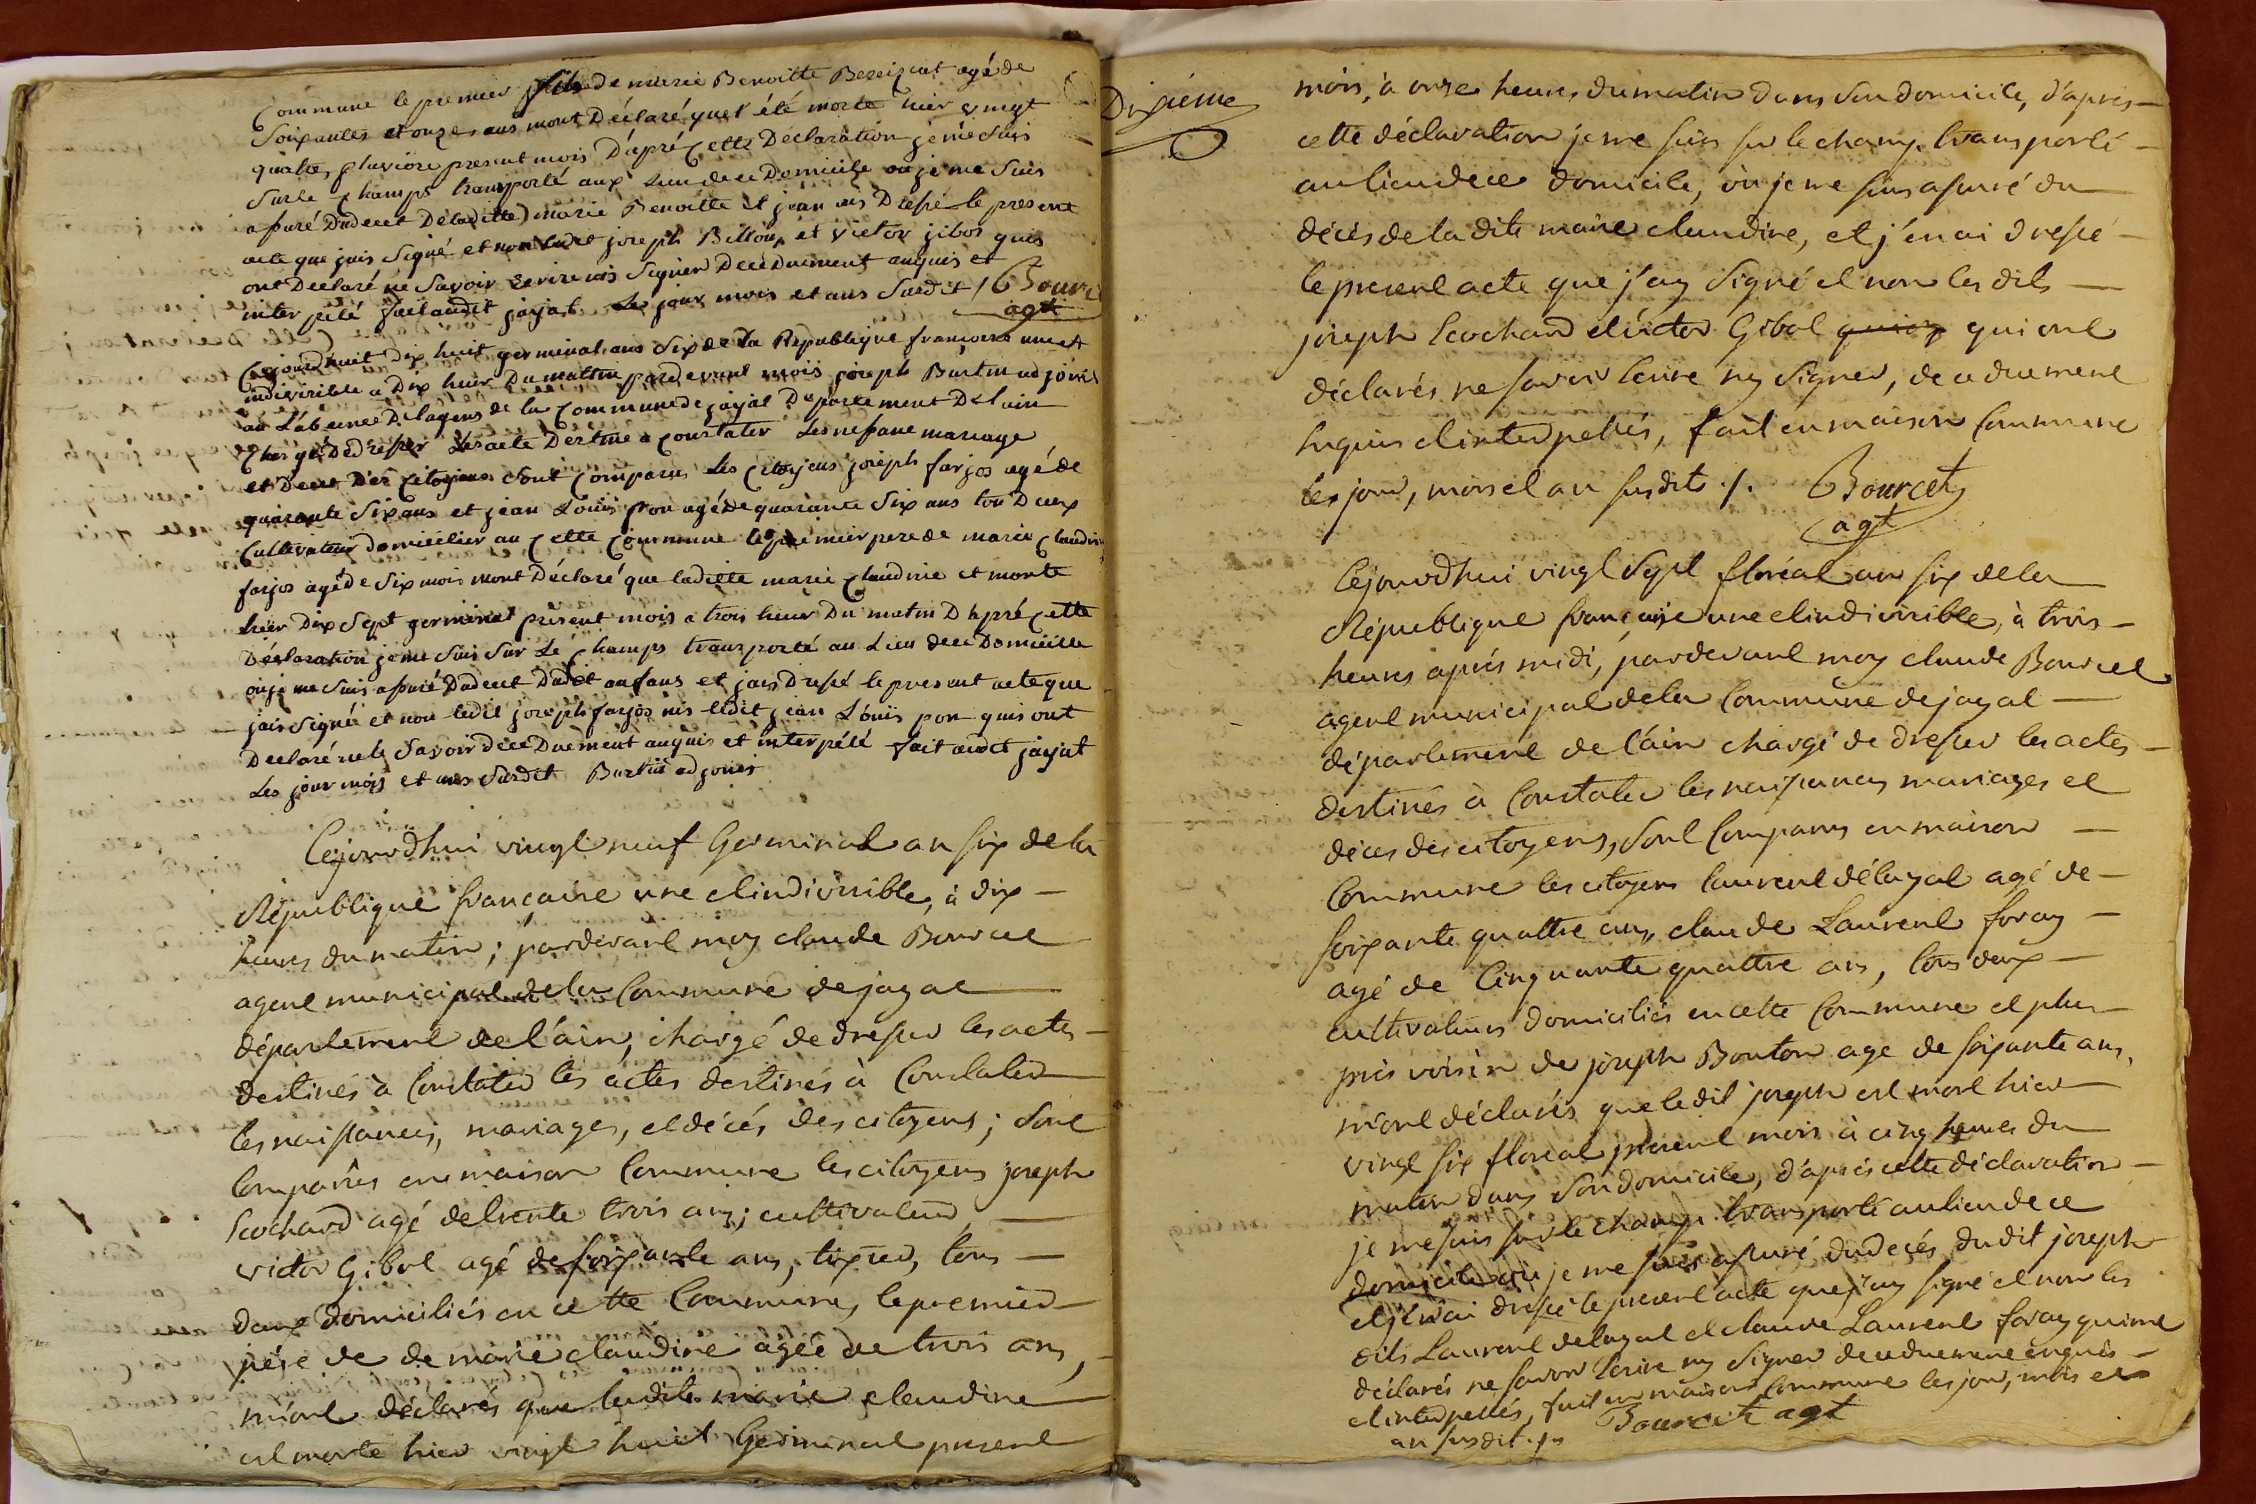 Commune le premier fils de marie Benoitte agé de
Soixantes et onzes ans mont Déclaré quel été morte hier vingt
quattes pluviore present mois D'apré cette Declaration je me Suis
Surle champs transporté aux Lieu de ce Domicile ou je me Suis
assuré Dudecet De laditte marie Benoitte et jean ais Dressé le present
acte que jais Signé et non ledit joseph Billoup et victor jibos quis
ont Declaré ne Savoir Ecrire nis Signier Dece Duement anquis et
inter pélé fait audit jayat Les jour mois et ans Susdit / Bource
agt
Cejourdhuit dix huit germinal ans Six de la Republique françoise une et
indivisible a Dix heur Du mattin par devant mois joseph Burtin adjoins
au L'absence De lagens de la Commune de jayat Departement De lain
Chargé De dresser Les acte Destiné a Constater Les nessance mariage
et Decet Des Citoyens Sont Comparu Les Citoyens joseph farjos agé de
quarante Six ans et jean Louis pon agé de quarante Six ans tou Deux
Cultivateur domicilier au cette Commune le premier pere de marie Claudine
farjos agé de Six mois mont Déclaré que laditte marie Claudine et morte
hier Dix Sept germinal présent mois a trois heur Du matin D'apré cette
Déclaration je me Suis Sur Le Champs transporté au Lieu de ce Domicille
ou je me Suis assuré Dudecet Dudit anfans et jais Dressé le present acte que
jais Signié et non ledit joseph farjos nis ledit jean Louis pon quis ont
Declaré nele Savoir Dece Duement anquis et interpélé fait audit jayat
Les jour mois et ans Susdit Burtin adjoins
Cejourdhui vingt neuf Germinal an six de la
République française une et indivisible, à dix
heures du matin; pardevant moy claude Bourcet
agent municipal de la Commune de jayat
département de l'ain, chargé de dresser les actes
destinés à Constater les actes destinés à Constater
les naissances, mariages, et décés des citoyens; Sont
Comparûs en maison Commune les citoyens joseph
Scochard agé de trente trois ans; cultivateur
victor Gibol agé de soixante ans, tixier, tous
deux domiciliés en cette Commune, le premier
pére de de marie claudine agée de trois ans,
m'ont déclarés que ladite marie claudine
est morte hier vingt huit Germinal present
Dixieme
mois, à onze heures du matin dans Son domicile, d'après
cette déclaration je me suis sur le champ transporté
au lieu de ce domicile, où je me suis assuré du
décès de la dite marie claudine, et j'en ai dressé
le present acte que j'ay Signé et non les dits
joseph Scochard et victor Gibol qui ont
déclarés ne savoir Ecrire ny Signer, de ce duement
Enquis et interpellés, fait en maison Commune
les jour, mois et an susdits ./. Bourcet
agt
Cejourdhui vingt Sept floréal an six de la
République française une et indivisible, à trois
heures après midi, pardevant moy claude Bourcet
agent municipal de la Commune de jayat
département de l'ain chargé de dresser les actes
destinés à Constater les naissances mariages et
déces des citoyens, Sont Comparus en maison
Commune les citoyens laurent délayat agé de
soixante quattre ans, claude Laurent foray
agé de Cinquante quattre ans, tous deux
cultivateurs domiciliés en cette Commune et plus
près voisin de joseph Bouton age de soixante ans,
m'ont déclarés que ledit joseph est mort hier
vingt six floréal present mois à cinq heures du
matin dans Son domicile, d'après cette déclaration
je me suis sur le champ transporté au lieu de ce
domicile où je me suis assuré dudecés dudit joseph
et j'en ai dressé le present acte que j'ay signé et non les
dits Laurent delayat et claude Laurent foray qui ont
déclarés ne savoir Ecrire ny Signer de ce duement enquis
et interpellés, fait en maison Commune les jour, mois et
an susdit ./. Bourcet agt